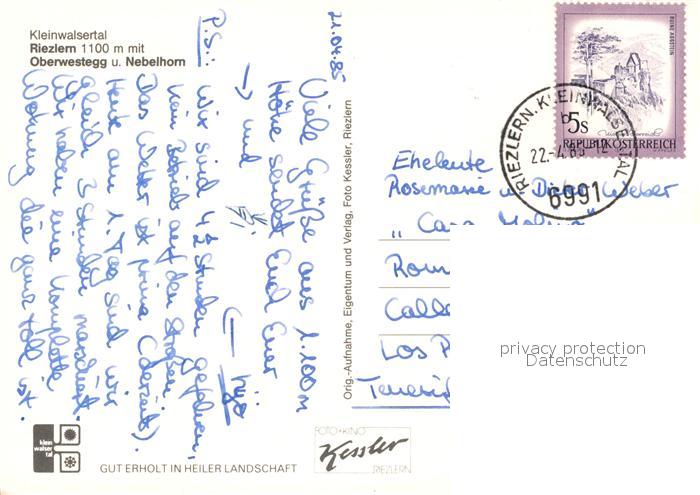 Kleinwalsertal
Riezlern 1100 m mit
Oberwestegg u. Nebelhorn
21.04.85
Viele Grüße aus 1.100m
Höhe sendet Euch Euer
→ und
P.S.: Wir sind 4½ Stunden gefahren,
kein Betrieb auf den Straßen.
Das Wetter ist prima (derzeit).
Heute am 1. Tag sind wir
gleich 3 Stunden marschiert.
Wir haben eine komplette
Wohnung die ganz toll ist.
Orig.-Aufnahme, Eigentum und Verlag, Foto Kessler, Riezlern
RUINE AGGSTEIN
5s
REPUBLIK ÖSTERREICH
RIEZLERN, KLEINWALSERTAL
22.-4.85-12
b
6991
Eheleute
Rosemarie u. Dieter Weber
" Casa
Rom
Calle
Los P
Tenerif
privacy protection
Datenschutz
klein
walser
tal
GUT ERHOLT IN HEILER LANDSCHAFT
FOTO+KINO
Kessler
RIEZLERN